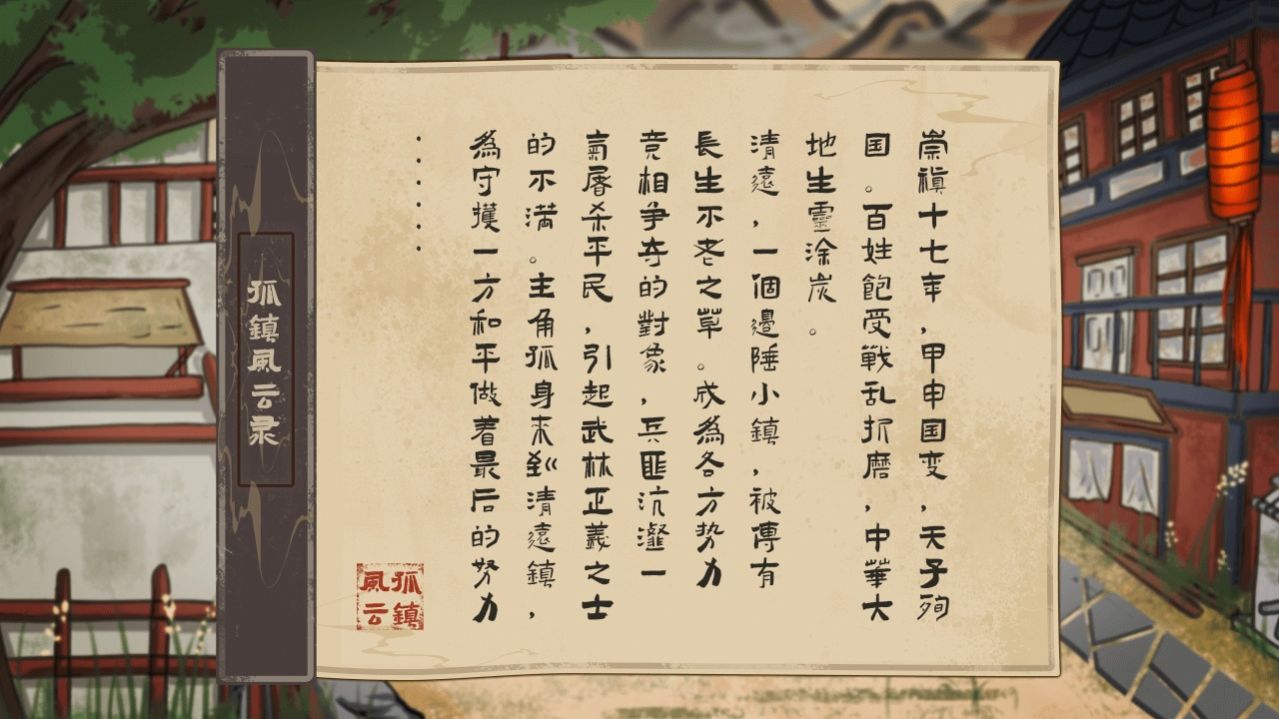 崇禎十七年，甲申国变，天子殉
国。百姓飽受戰乱折磨，中華大
地生靈涂炭。
清遠，一個邊陲小鎮，被傳有
長生不老之草。成為各方势力
竞相争夺的對象，兵匪沆瀣一
氣屠杀平民，引起武林正義之士
的不满。主角孤身来到清遠鎮，
為守擭一方和平做着最后的努力
······
孤鎮
風云
孤鎮風云录